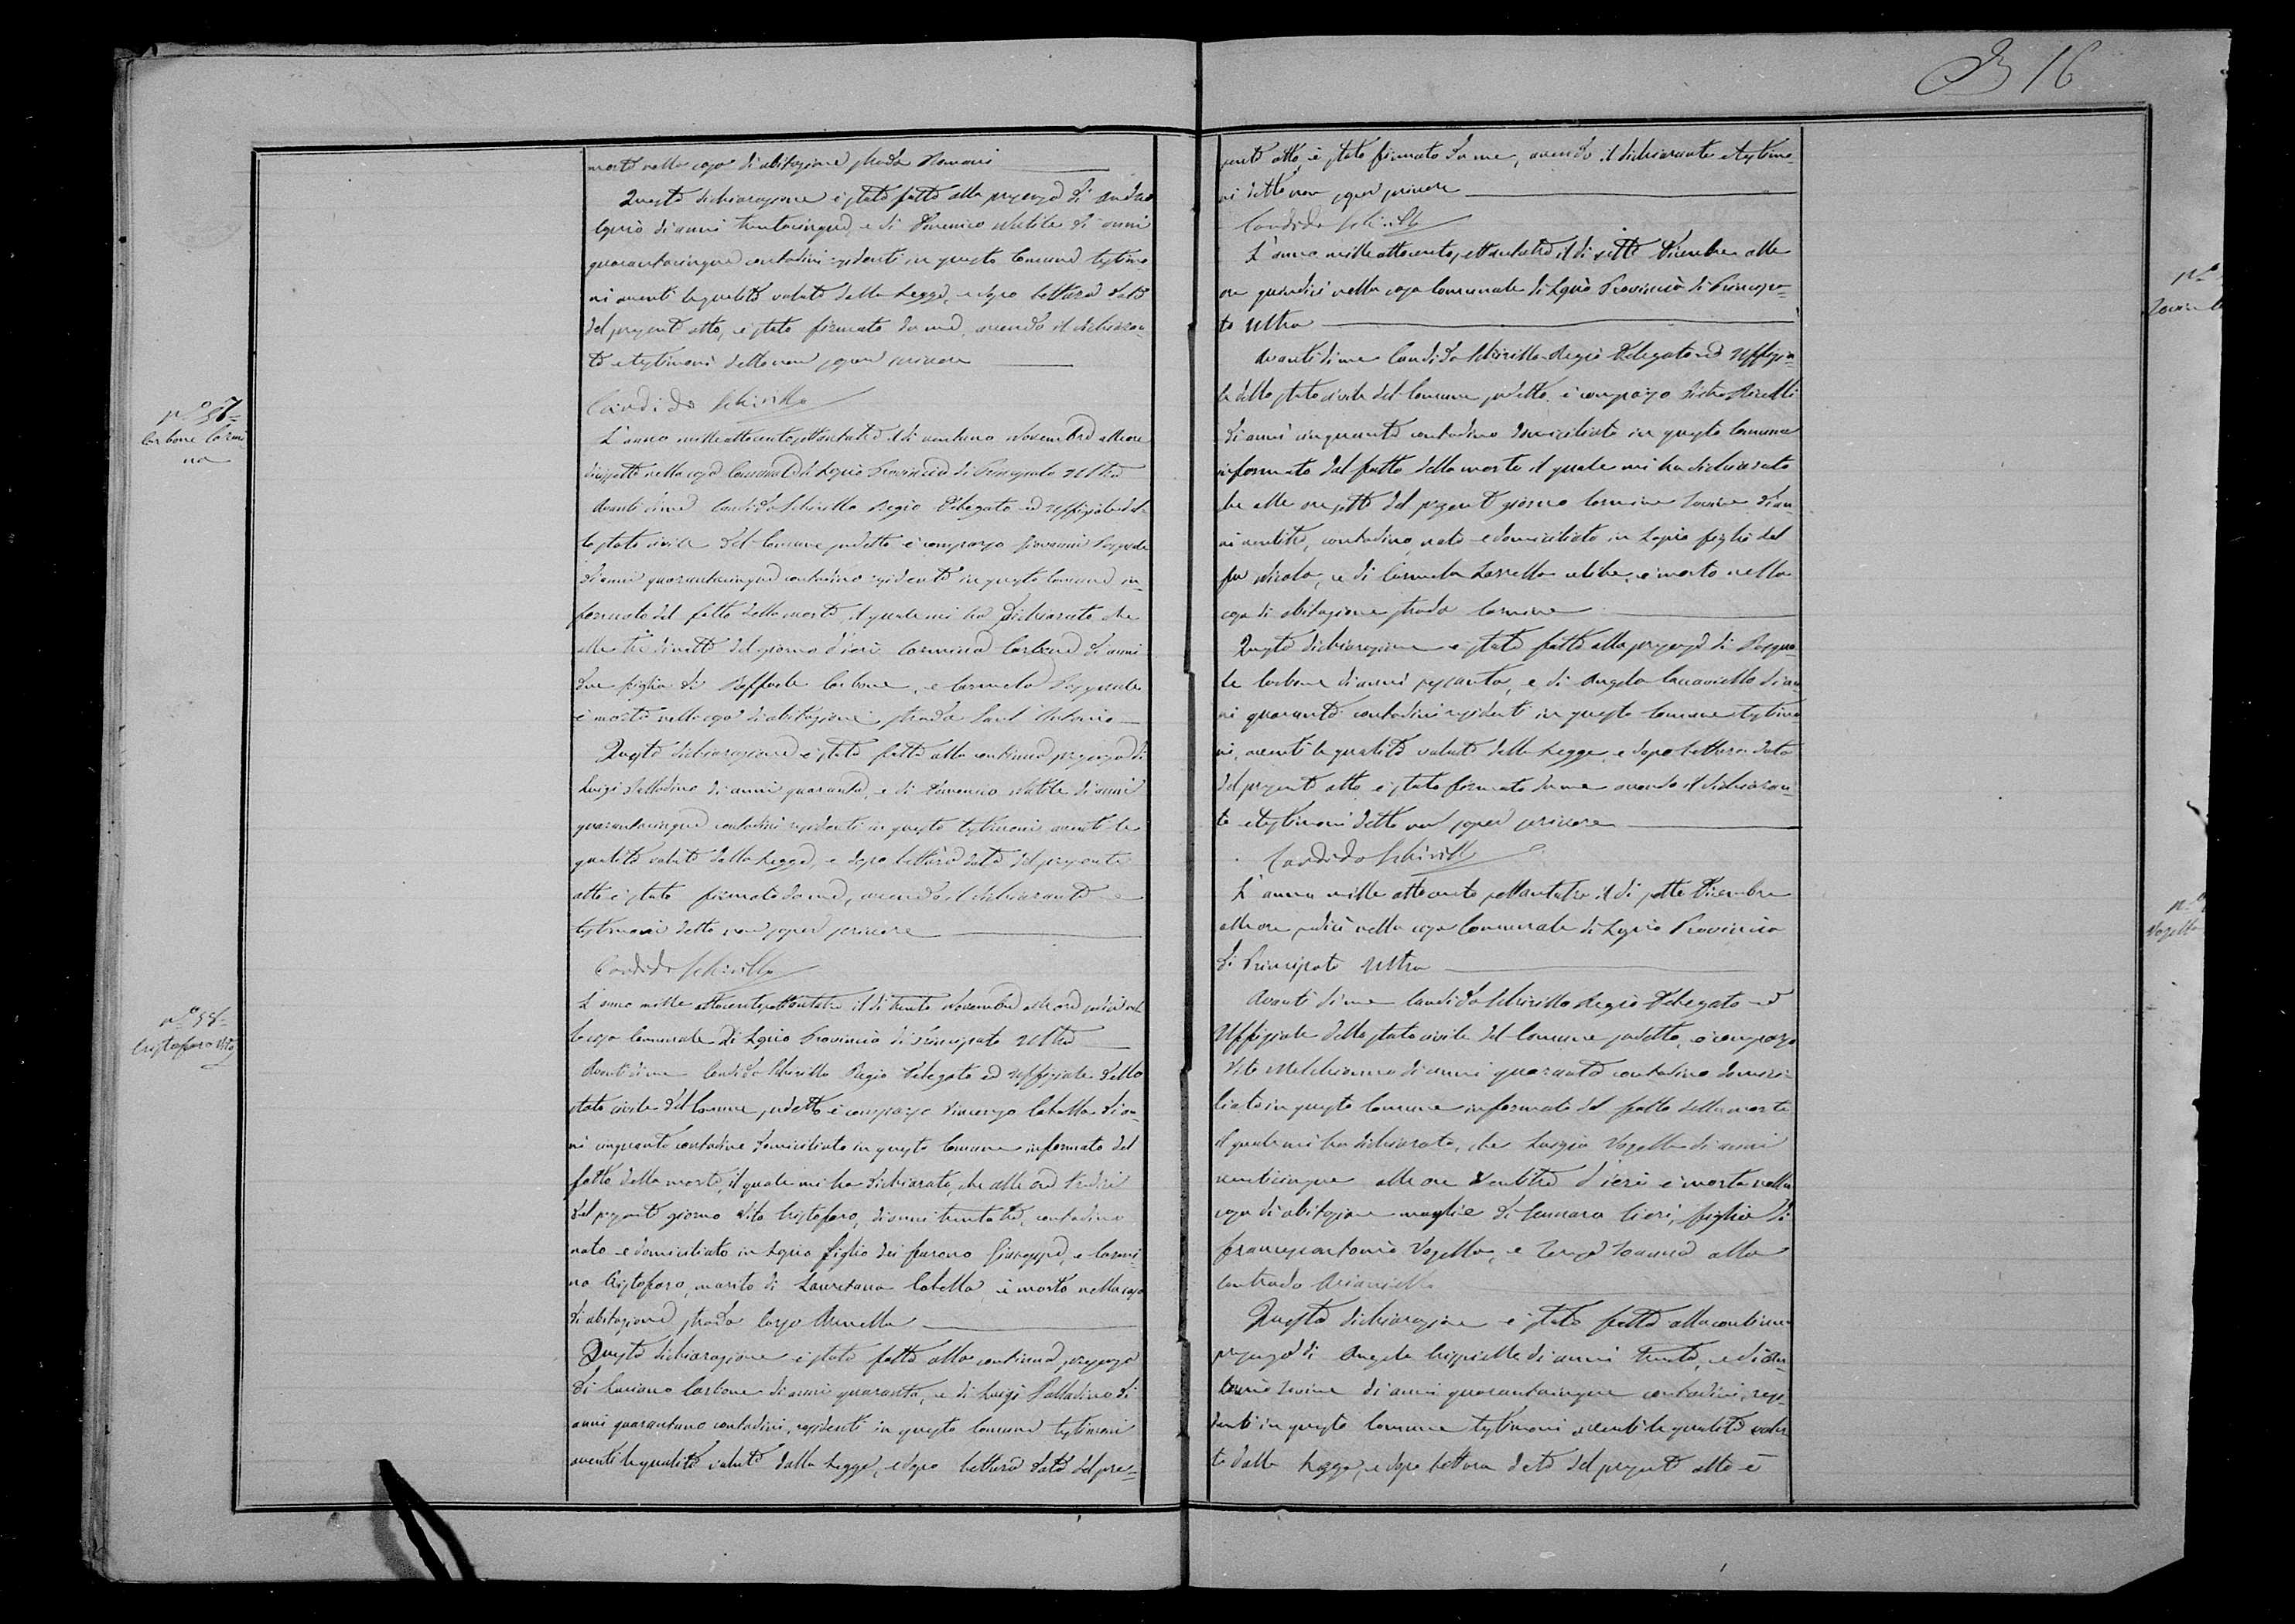 B 16
morta nella casa di abitazione strada Romani
Questa dichiarazione è stata fatta alla presenza di Andrea
Capriò di anni trentacinque, e di Domenico Natile di anni
quarantacinque contadini residenti in questo Comune testimo
ni aventi le qualità volute dalla Legge, e dopo lettura data
del presente atto, è stato firmato da me avendo il dichiaran
te e testimoni detto non saper scrivere
Candido Schirillo
N.º 57=
Carbone Carmi
na
L'anno mille ottocento settantatre il dì ventuno Novembre alle ore
diciassette nella casa Comunale di Lapio Provincia di Principato Ultra
Avanti di me Candido Schirillo Regio Delegato ed Uffiziale del
lo stato civile del Comune sudetto è comparso Giovanni
di anni quarantacinque contadino residente in questo Comune in
formato del fatto della morte, il quale mi ha dichiarato che
alle tre di notte del giorno d'ieri Carmina Carbone di anni
due figlia di Raffaele Carbone, e Carmela
è morta nella casa di abitazione strada Sant'Antonio
Questa dichiarazione è stata fatta alla continua presenza di
Luigi Palladino di anni quaranta, e di Domenico Natile di anni
quarantacinque contadini residenti in questo testimoni aventi le
qualità volute dalla Legge, e dopo lettura data del presente
atto è stato firmato da me, avendo il dichiarante e
testimoni detto non saper scrivere
Candido Schirillo
N.º 58=
Cristofaro Vito
L'anno mille ottocento settantatre il dì trenta Novembre alle ore sedici nel
la casa Comunale di Lapio Provincia di Principato Ultra
Avanti di me Candido Schirillo Regio Delegato ed Uffiziale dello
stato civile del Comune sudetto è comparso Vincenzo Cabella di an
ni cinquanta contadino domiciliato in questo Comune informato del
fatto della morte, il quale mi ha dichiarato, che alle ore tredici
del presente giorno Vito Cristofaro, di anni trentatre, contadino
nato e domiciliato in Lapio figlio dei furono Giuseppe, e Carmi
na Cristofaro, marito di Lauretana Cabella è morto nella casa
di abitazione strada Carpo
Questa dichiarazione è stata fatta alla continua presenza
di Luciano Carbone di anni quaranta, e di Luigi Palladino di
anni quarantuno contadini, residenti in questo Comune testimoni
aventi le qualità volute dalla Legge, e dopo lettura data del pre=
sente atto, è stato firmato da me, avendo il dichiarante e testimo
ni detto non saper scrivere
Candido Schirillo
L'anno mille ottocento settantatre il dì sette Dicembre alle
ore quindici nella casa Comunale di Lapio Provincia di Principa=
to Ultra
Avanti di me Candido Schirillo Regio Delegato ed Uffizia=
le dello stato civile del Comune sudetto, è comparso Pietro
di anni cinquanta contadino domiciliato in questo Comune
informato del fatto della morte il quale mi ha dichiarato
che alle ore sette del presente giorno Carmine di an=
ni ventitre, contadino, nato e domiciliato in Lapio figlio del
fu Nicola, e di Carmela celibe, è morto nella
casa di abitazione strada Carmine
Questa dichiarazione è stata fatta alla presenza di Pasqua=
le Carbone di anni sessanta, e di Angelo di an=
ni quaranta contadini residenti in questo Comune testimo=
ni, aventi le qualità volute dalla Legge, e dopo lettura data
del presente atto è stato firmato da me avendo il dichiaran=
te e testimoni detto non saper scrivere
Candido Schirillo
L'anno mille ottocento settantatre il dì sette Dicembre
alle ore sedici nella casa Comunale di Lapio Provincia
di Principato Ultra
Avanti di me Candido Schirillo Regio Delegato ed
Uffiziale dello stato civile del Comune sudetto, è comparso
Vito di anni quaranta contadino domici
liato in questo Comune informato del fatto della morte
il quale mi ha dichiarato, che Vozella di anni
venticinque alle ore ventitre d'ieri è morta nella
casa di abitazione moglie di Gennaro Cieri, figlia di
Francescantonio Vozella, e alla
contrada Arianiello
Questa dichiarazione è stata fatta alla continua
presenza di Angelo di anni trenta, e di An=
tonio di anni quarantacinque contadini, resi=
denti in questo Comune testimoni aventi le qualità volu
te dalla Legge, e dopo lettura data del presente atto è
N.º
N.º
Vozella